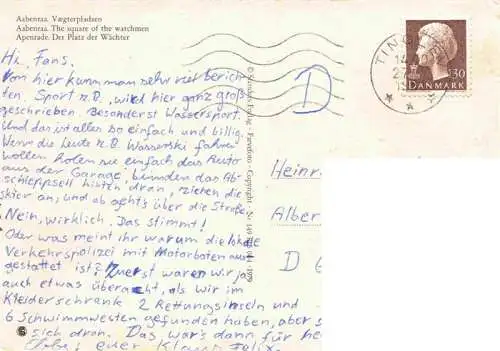 Aabenraa. Vægterpladsen
Aabenraa. The square of the watchmen
Apenrade. Der Platz der Wächter
Hi, Fans.
Von hier kann man sehr viel berich
ten. Sport z.B. wird hier ganz groß
geschrieben. Besonderst Wassersport.
Und das ist alles so einfach und billig.
Wenn die Leute z.B. Wasserski fahren
wollen holen sie einfach das Auto
aus der Garage, binden das Ab-
schleppseil hinten dran, ziehen die
skier an, und ab geht's über die Straße
Nein, wirklich. Das stimmt!
Oder was meint ihr warum die lokale
Verkehrspolizei mit Motorbooten aus
gestattet ist? Zuerst waren wir ja
auch etwas überascht, als wir im
Kleiderschrank 2 Rettungsinseln und
6 Schwimmwesten gefunden haben, aber
sich dran. Das war's dann für
euer Klaus Felix
Copyright
1979
D
TING
DANMARK
130
Heinr
Alber
D 6